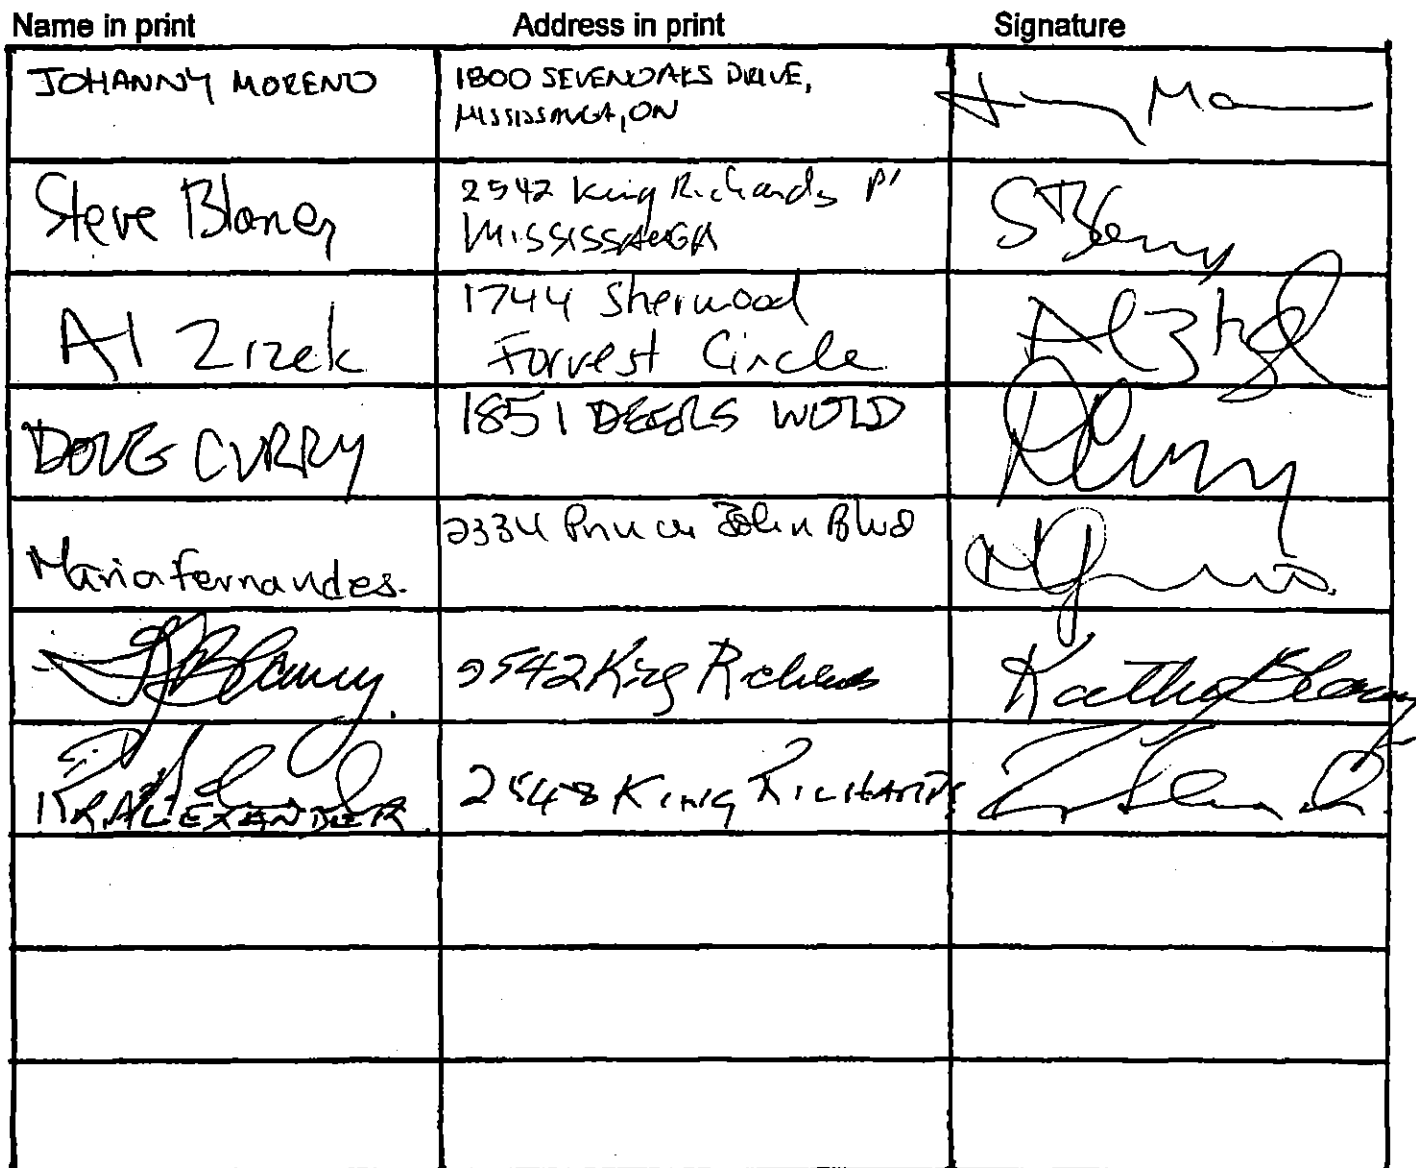 Name in print Address in print Signature
JOHANNY MORENO 1800 SEVENOAKS DRIVE,
MISSISSAUGA, ON
Steve Blaney 2542 King Richards Pl
MISSISSAUGA
Al Zizek 1744 Sherwood
Forrest Circle
DOUG CURRY 1851 DEERS WOLD
Maria Fernandes. 2334 Prince John Blvd
Blaney. 2542 King Richards Kathy Blaney
ALEXANDER 2548 KING RICHARDS